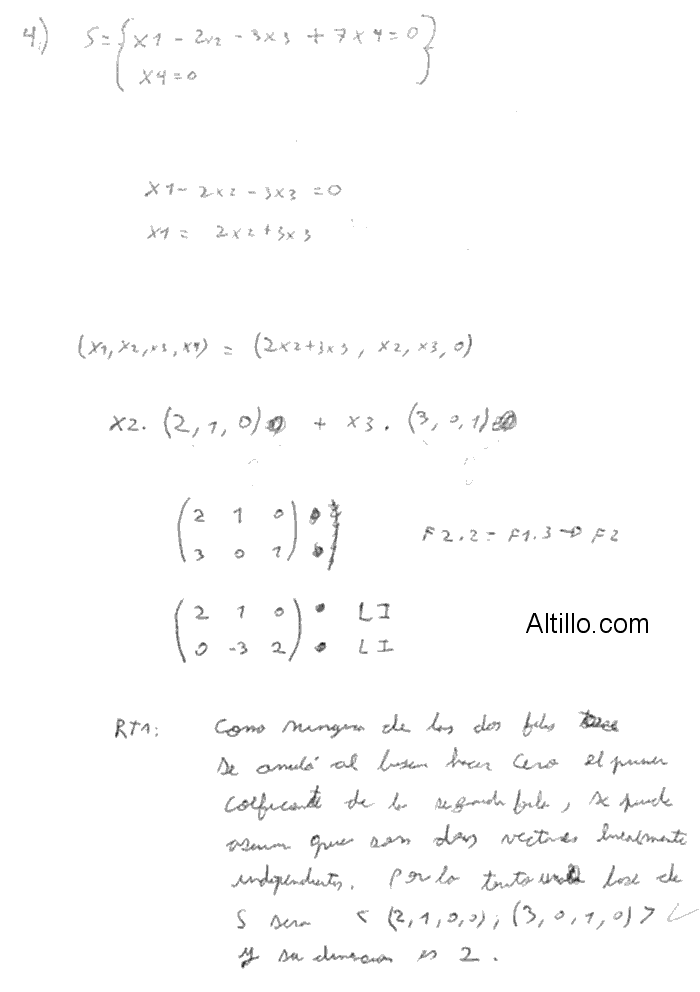 4) S = { x1 - 2x2 - 3x3 + 7x4 = 0 }
x4 = 0
x1 - 2x2 - 3x3 = 0
x1 = 2x2 + 3x3
(x1, x2, x3, x4) = (2x2+3x3, x2, x3, 0)
x2. (2, 1, 0) + x3. (3, 0, 1)
( 2 1 0 ) F2.2 - F1.3 → F2
( 3 0 1 )
( 2 1 0 ) • LI
( 0 -3 2 ) • LI
Altillo.com
RTA: Como ninguna de las dos filas
se anuló al buscar hacer cero el primer
coeficiente de la segunda fila, se puede
asumir que son dos vectores linealmente
independientes. Por lo tanto una base de
S sera < (2,1,0,0); (3,0,1,0) > ✓
y su dimension es 2.